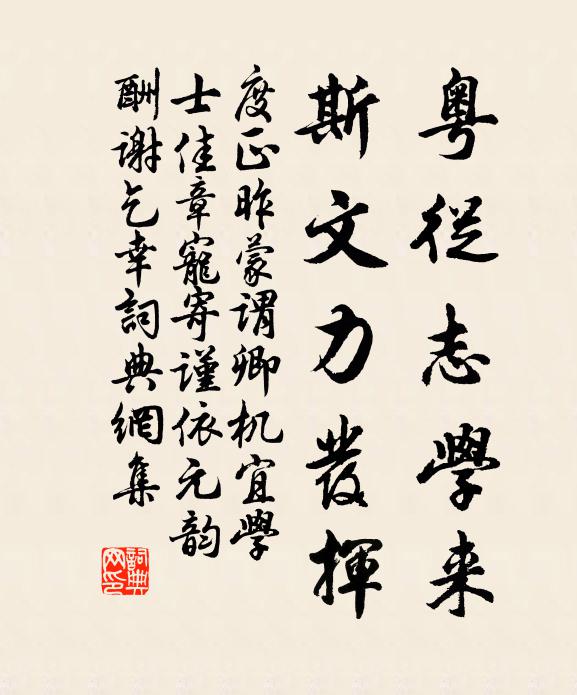 粤從志學来
斯文力發揮
度正昨蒙謂卿机宜學
士佳章寵寄謹依元韵
酬谢乞幸詞典網集
詞典網印